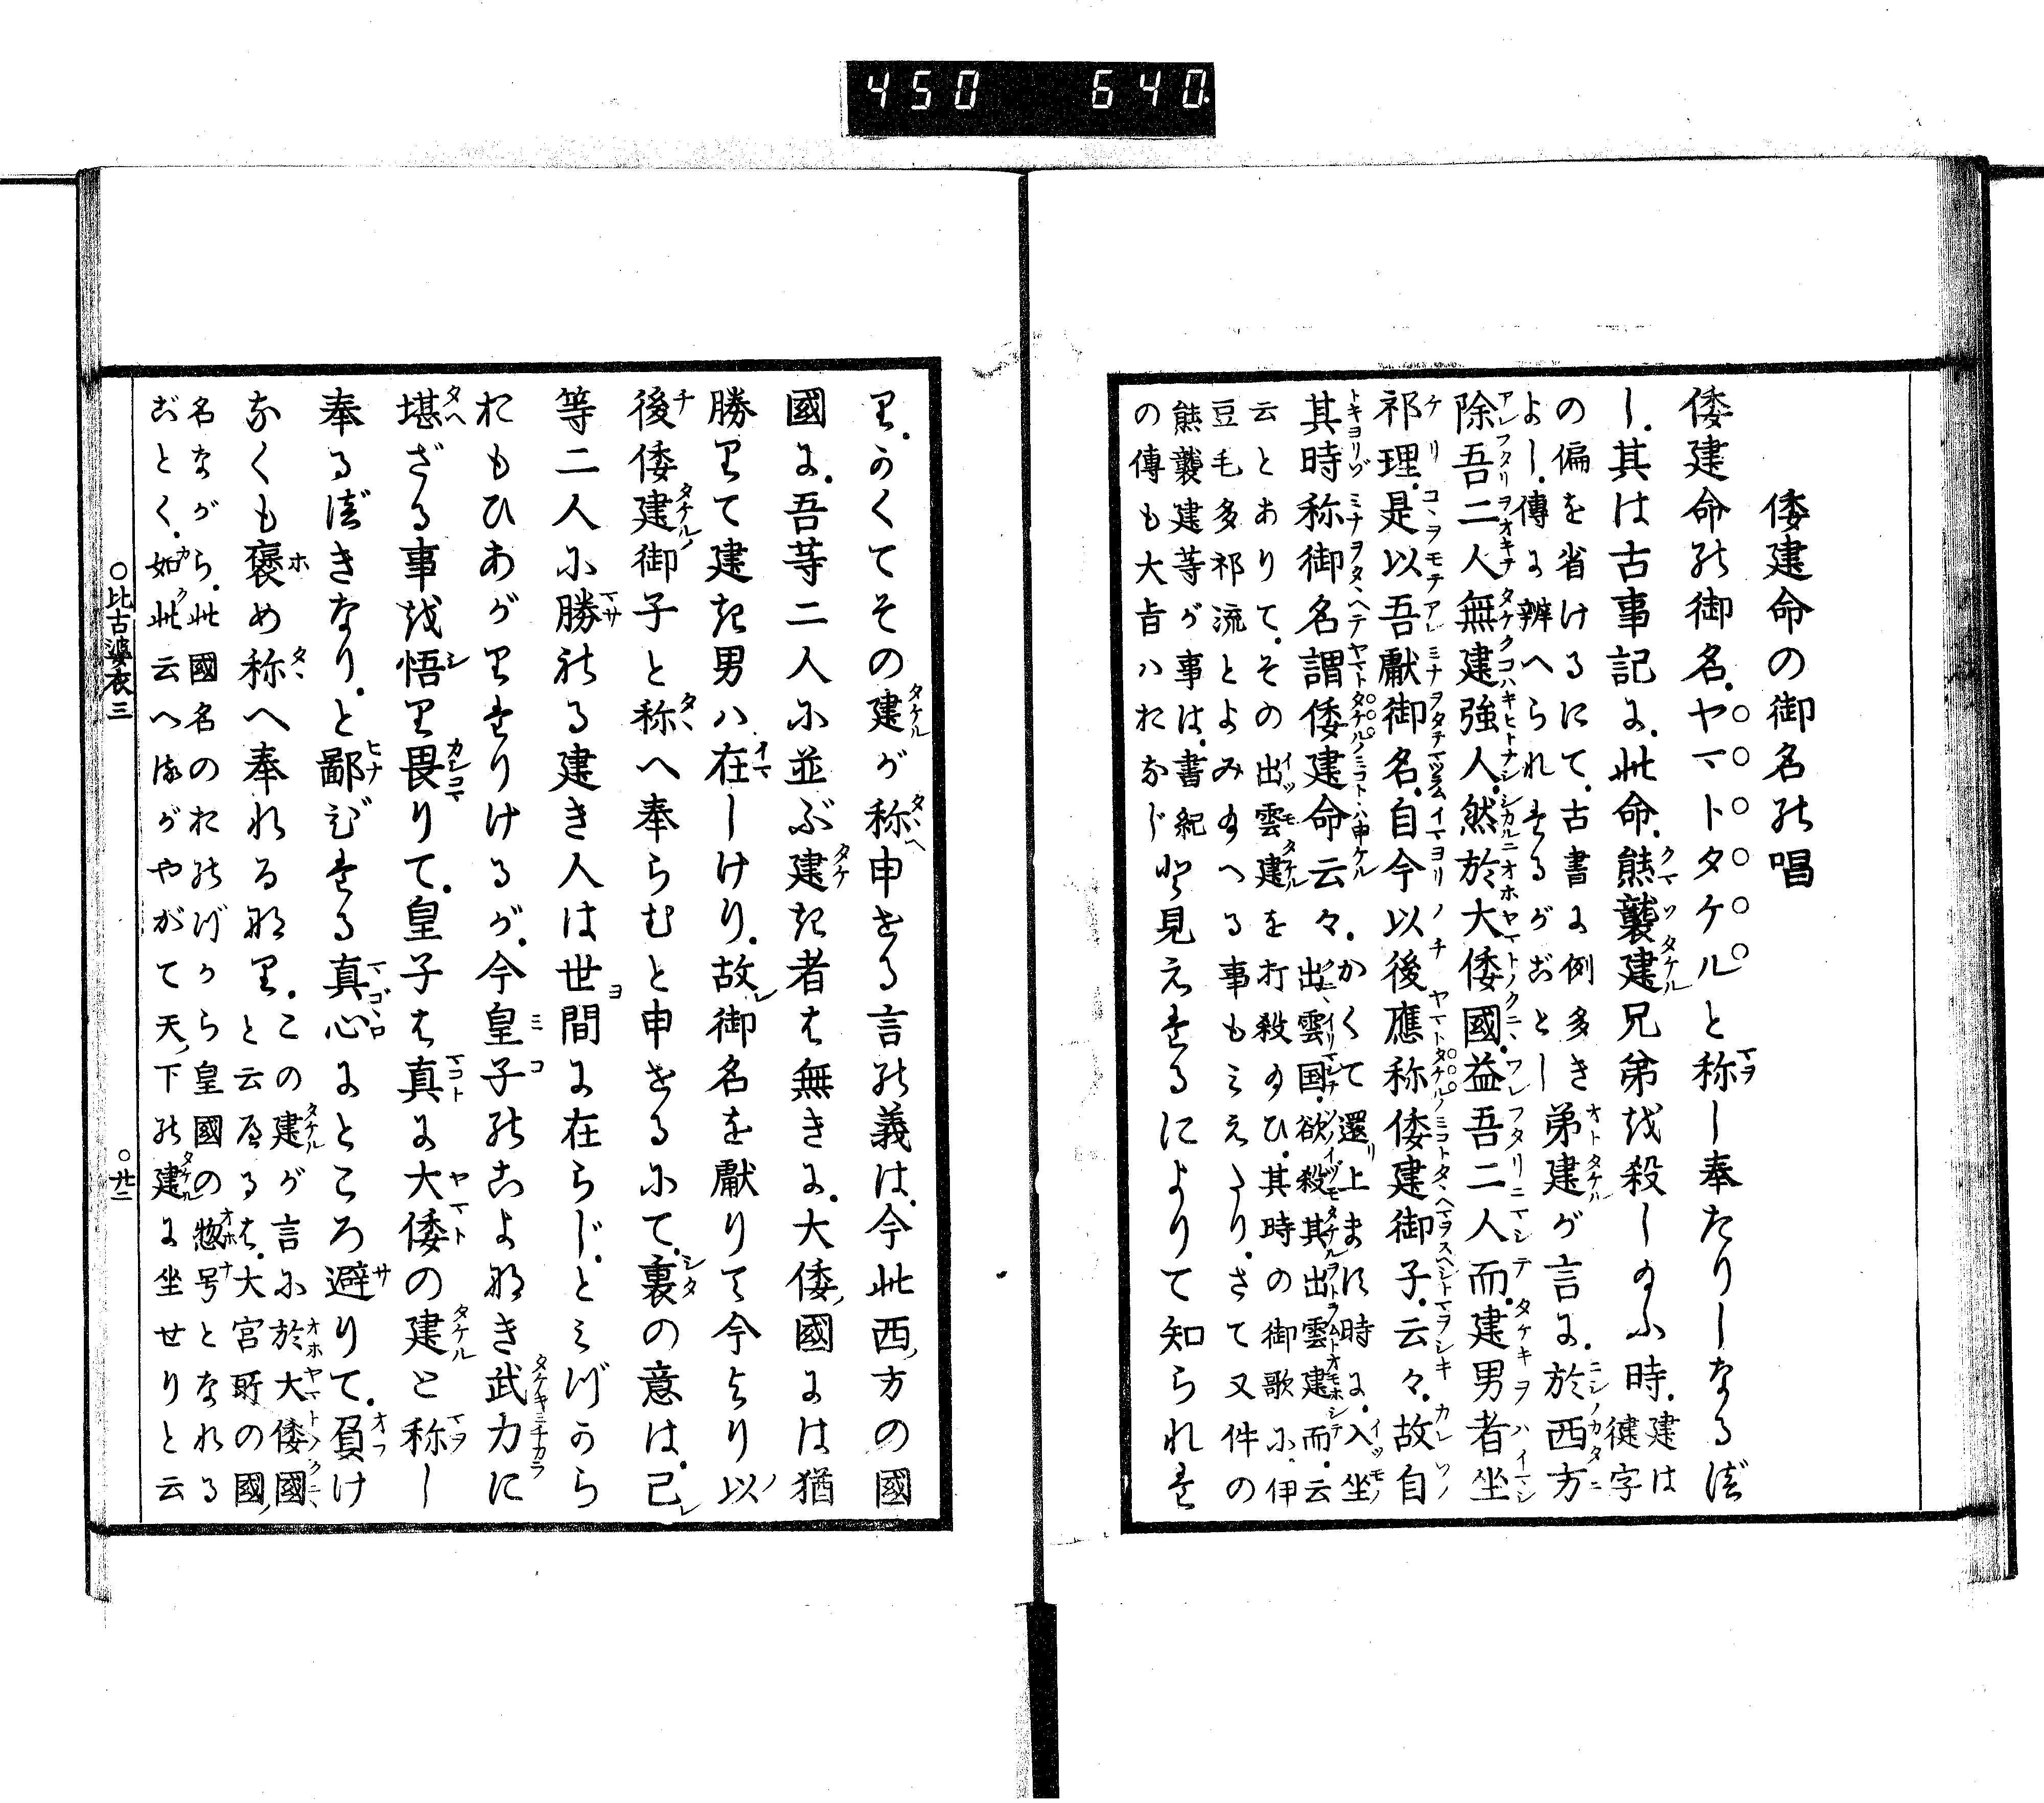 450 640
倭建命の御名の唱
倭建命の御名.ヤマトタケルと称し奉たりしなるべ
し.其は古事記に.此命.熊襲建兄弟を殺しゝ給ふ時.建は健字
の偏を省けるにて.古書に例多き
よし.傳に辨へられたるがごとし弟建が言に.於西方
除吾二人無建強人.然於大倭國.益吾二人而.建男者坐
祁理.是以吾獻御名.自今以後應称倭建御子.云々.故自
其時称御名謂倭建命云々.かくて還上ます時に.入坐
出雲国.欲殺其出雲建而.云
云とありて.その出雲建を打殺給ひ.其時の御歌に.伊
豆毛多祁流とよみ給へる事もみえたり.さて又件の
熊襲建等が事は.書紀
の傳も大旨ハおなじと見えたるによりて知られた
り.かくてその建が称申せる言の義は.今此西方の國
國に.吾等二人に並ぶ建き者は無きに.大倭國には猶
勝りて建き男ハ在しけり.故御名を獻りて今より以
後倭建御子と称へ奉らむと申せるにて.裏の意は.己
等二人に勝れる建き人は世間に在らじ.とみづから
おもひあがりたりけるが.今皇子のこよなき武力に
堪ざる事を悟り畏りて.皇子は真に大倭の建と称し
奉るべきなり.と鄙びたる真心にところ避りて.負け
なくも褒め称へ奉れるなり.この建が言に於大倭國
と云へるは.大宮所の國
名ながら.此國名のおのづから皇國の惣号となれる
ごとく.如此云へるがやがて天下の建に坐せりと云
○比古婆衣三 ○廿二